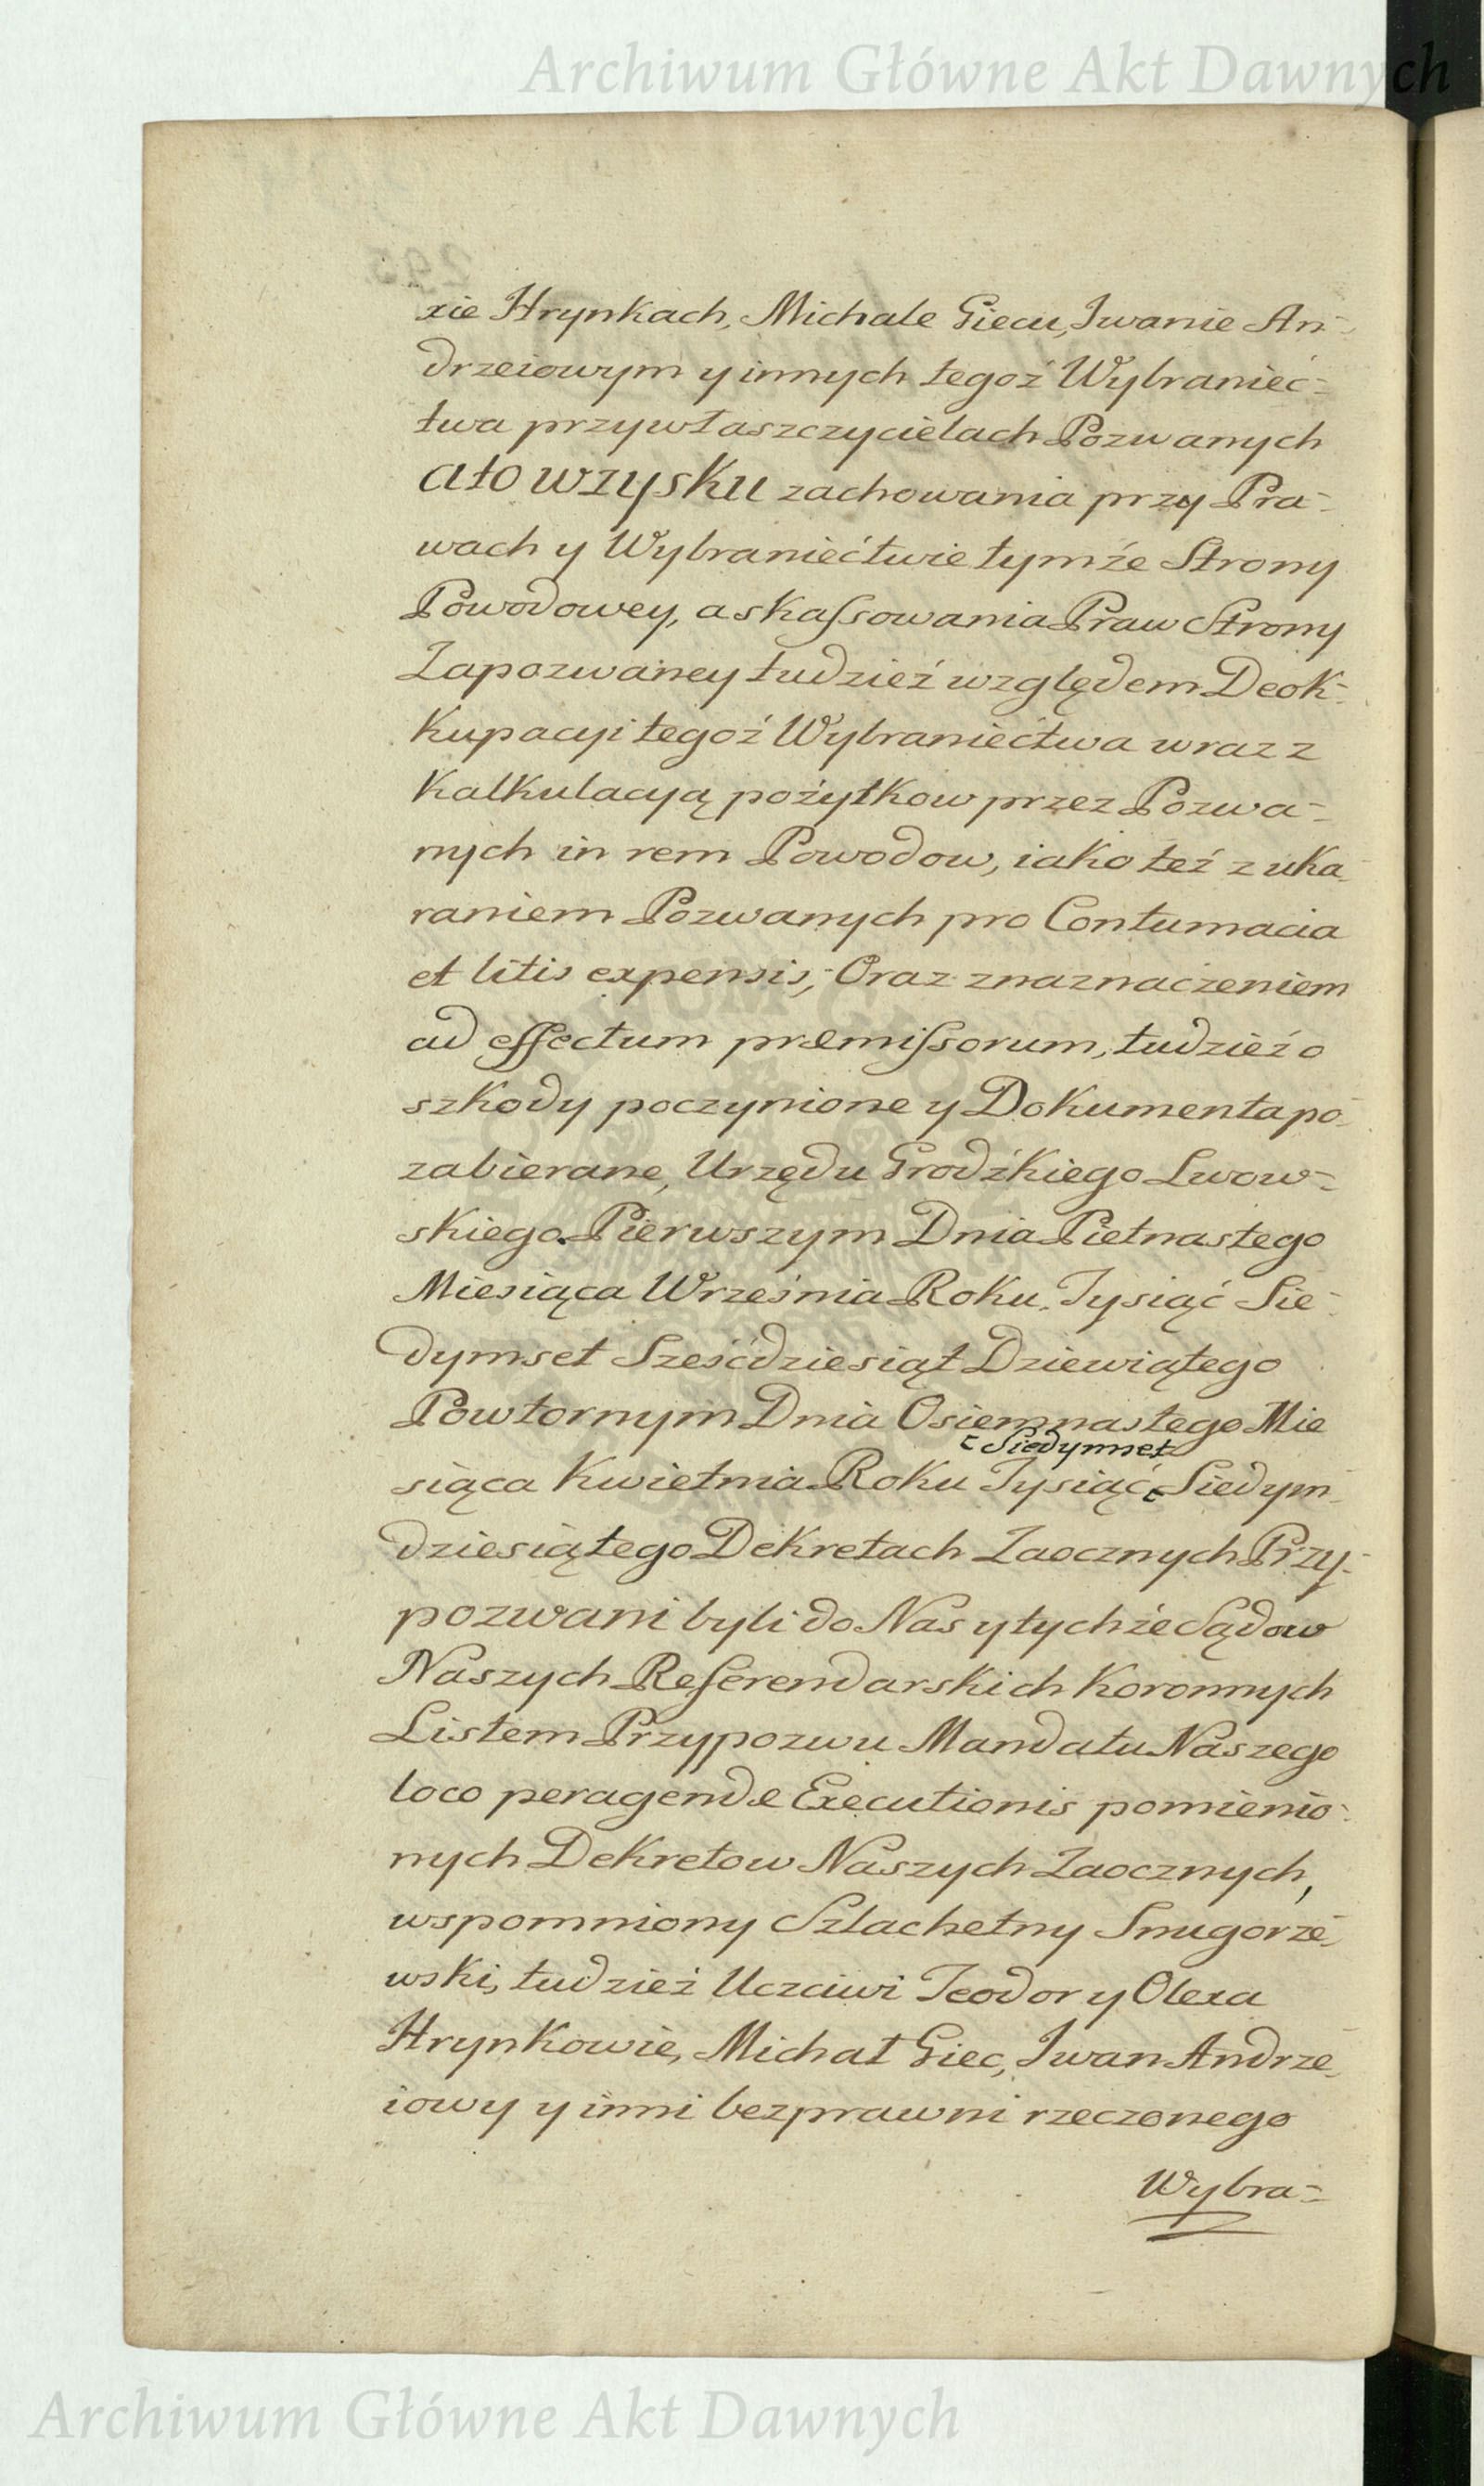 Archiwum Główne Akt Dawnych
xie Hrynkach, Michale Giecu, Iwanie An-
drzeiowym y innych tegoż Wybraniec-
twa przywłaszczycielach Pozwanych
ato wzysku zachowania przy Pra-
wach y Wybraniectwie tymże Strony
Powodowey, a skassowania Praw Strony
Zapozwaney tudzież względem Deok-
kupacyi tegoż Wybraniectwa wraz z
Kalkulacyą pożytkow przez Pozwa-
nych in rem Powodow, iako też z uka-
raniem Pozwanych pro Contumacia
et litis expensis, Oraz znaznaczeniem
ad effectum præmissorum, tudzież o
szkody poczynione y Dokumenta po-
zabierane, Urzędu Grodzkiego Lwow-
skiego Pierwszym Dnia Pietnastego
Miesiąca Września Roku Tysiąć Sie-
dymset Sześćdziesiąt Dziewiątego
Powtornym Dnia Osiemnastego Mie
Siedymset
siąca Kwietnia Roku Tysiąć Siedym-
dziesiątego Dekretach Zaocznych Przy-
pozwani byli do Nas y tychże Sądow
Naszych Referendarskich Koronnych
Listem Przypozwu Mandatu Naszego
loco peragendæ Executionis pomienio-
nych Dekretow Naszych Zaocznych,
wspomniony Szlachetny Smugorze-
wski, tudzież Uczciwi Teodor y Olexa
Hrynkowie, Michał Giec, Iwan Andrze-
iowy y inni bezprawni rzeczonego
Wybra-
Archiwum Główne Akt Dawnych